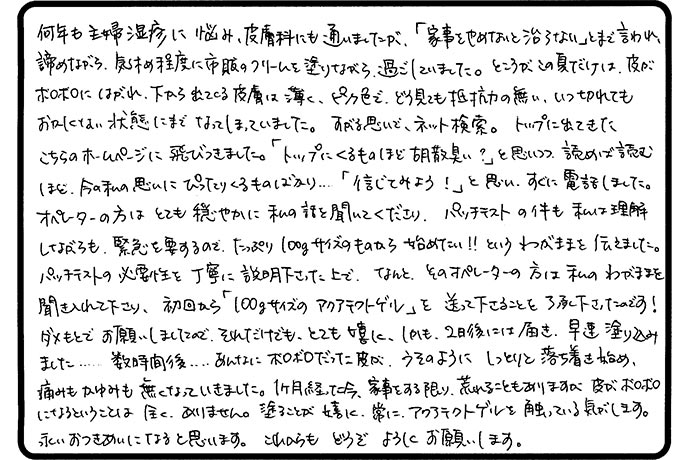 何年も主婦湿疹に悩み、皮膚科にも通いましたが、「家事をやめないと治らない」とまで言われ、
諦めながら、気休め程度に市販のクリームを塗りながら、過ごしていました。ところがこの夏だけは、皮が
ボロボロにはがれ、下から出てくる皮膚は薄く、ピンク色で、どう見ても抵抗力の無い、いつ切れても
おかしくない状態にまでなってしまっていました。すがる思いで、ネット検索。トップに出てきた
こちらのホームページに飛びつきました。「トップにくるものほど胡散臭い?」と思いつつ、読めば読む
ほど、今の私の思いにぴったりくるものばかり…。「信じてみよう!」と思い、すぐに電話しました。
オペレーターの方はとても穏やかに私の話を聞いてくださり、パッチテストの件も私は理解
しながらも、緊急を要するので、たっぷり100gサイズのものから始めたい!!というわがままを伝えました。
パッチテストの必要性を丁寧に説明下さった上で、なんと、そのオペレーターの方は私のわがままを
聞き入れて下さり、初回から「100gサイズのアクアテクトゲル」を送って下さることを了承下さったのです!
ダメもとでお願いしましたので、それだけでも、とても嬉しく、しかも、2日後には届き、早速塗り込み
ました……数時間後……あんなにボロボロだった皮が、うそのようにしっとりと落ち着き始め、
痛みもかゆみも無くなっていきました。1ヶ月経った今、家事をする限り、荒れることもありますが皮がボロボロ
になるということは全く、ありません。塗ることが嬉しく、常に、アクアテクトゲルを触っている気がします。
永いおつきあいになると思います。これからもどうぞよろしくお願いします。